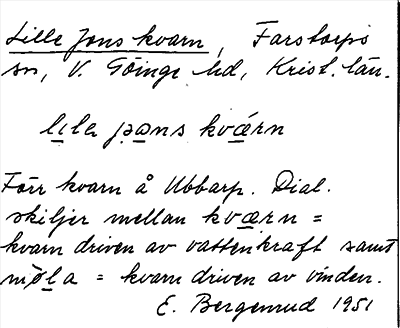 Lille Jons kvarn, Farstorps
sn, V. Göinge hd, Krist. län.
lila jo̲a̲ns kvǽrn
Förr kvarn å Ubbarp. Dial.
skiljer mellan kværn =
kvarn driven av vattenkraft samt
mø̲l̲a = kvarn driven av vinden.
E. Bergenrud 1951